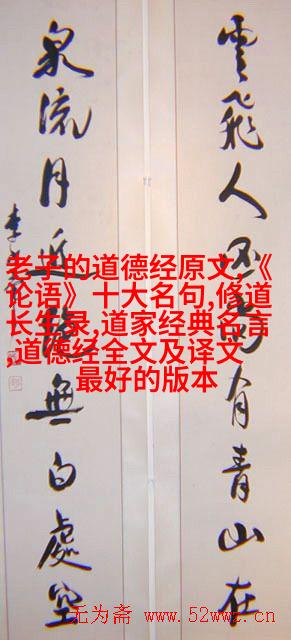 雲飛人不有青山在
泉流月無白處空
李
老子的道德经原文,《
论语》十大名句,修道
长生录,道家经典名言
,道德经全文及译文
最好的版本
无为斋 www.52wwz.cn